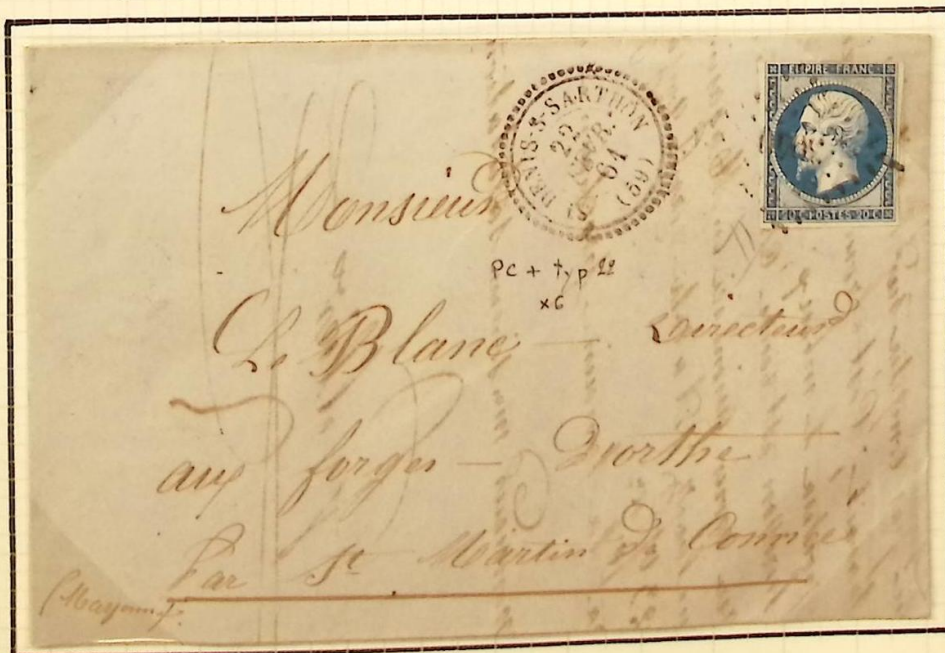 EMPIRE FRANC
20 C POSTES 20 C
DENIS-S-SARTHON
22
61
(59)
Monsieur
PC + typ 22
x6
Le Blanc — Directeur
aux forges — Dorthe
Par St Martin de Connée
(Mayenne)